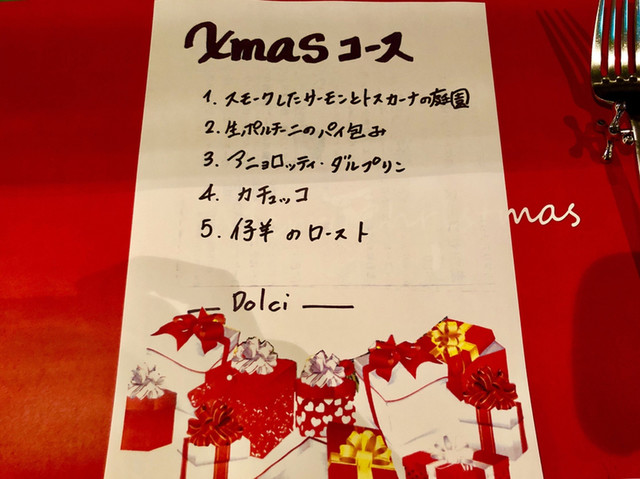 Xmasコース
1. スモークしたサーモンとトスカーナの庭園
2. 生ポルチーニのパイ包み
3. アニョロッティ・ダルプリン
4. カチュッコ
5. 仔羊のロースト
— Dolci —
mas